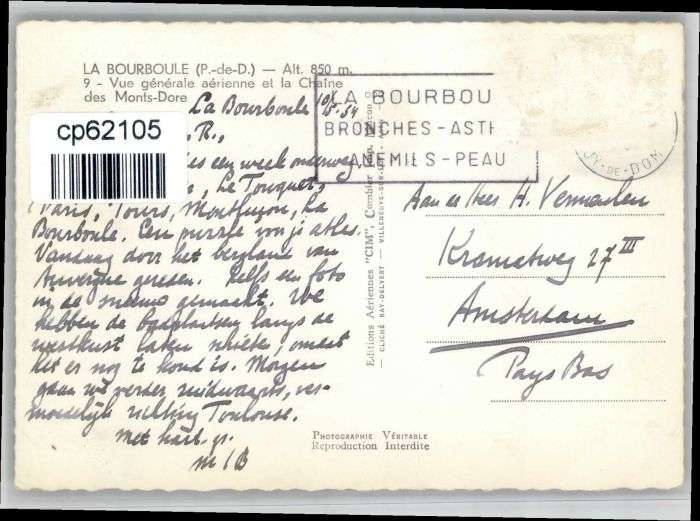 LA BOURBOULE (P.-de-D.) — Alt. 850 m.
9 - Vue générale aérienne et la Chaîne
des Monts-Dore
La Bourboule 10/5-54
cp62105
R.,
een week onderweg
Le Touquet,
Paris, Tours, Montluçon, La
Bourboule. Een puzzle voor je atlas.
Vandaag door het bergland van
Auvergne gereden. Zelfs een foto
in de sneeuw gemaakt. We
hebben de badplaatsen langs de
westkust laten schieten, omdat
het er nog te koud is. Morgen
gaan we verder zuidwaarts, ver-
moedelijk richting Toulouse.
Met hart. gr.
LA BOURBOU
BRONCHES-ASTH
ANEMIES-PEAU
UY-DE-DOM
Editions Aériennes "CIM", Combier Imp. Mâcon
— CLICHÉ RAY-DELVERT — VILLENEUVE-SUR-LOT
Aan de Heer H. Vermeulen
Krometweg 27 III
Amsterdam
Pays Bas
PHOTOGRAPHIE VÉRITABLE
Reproduction Interdite